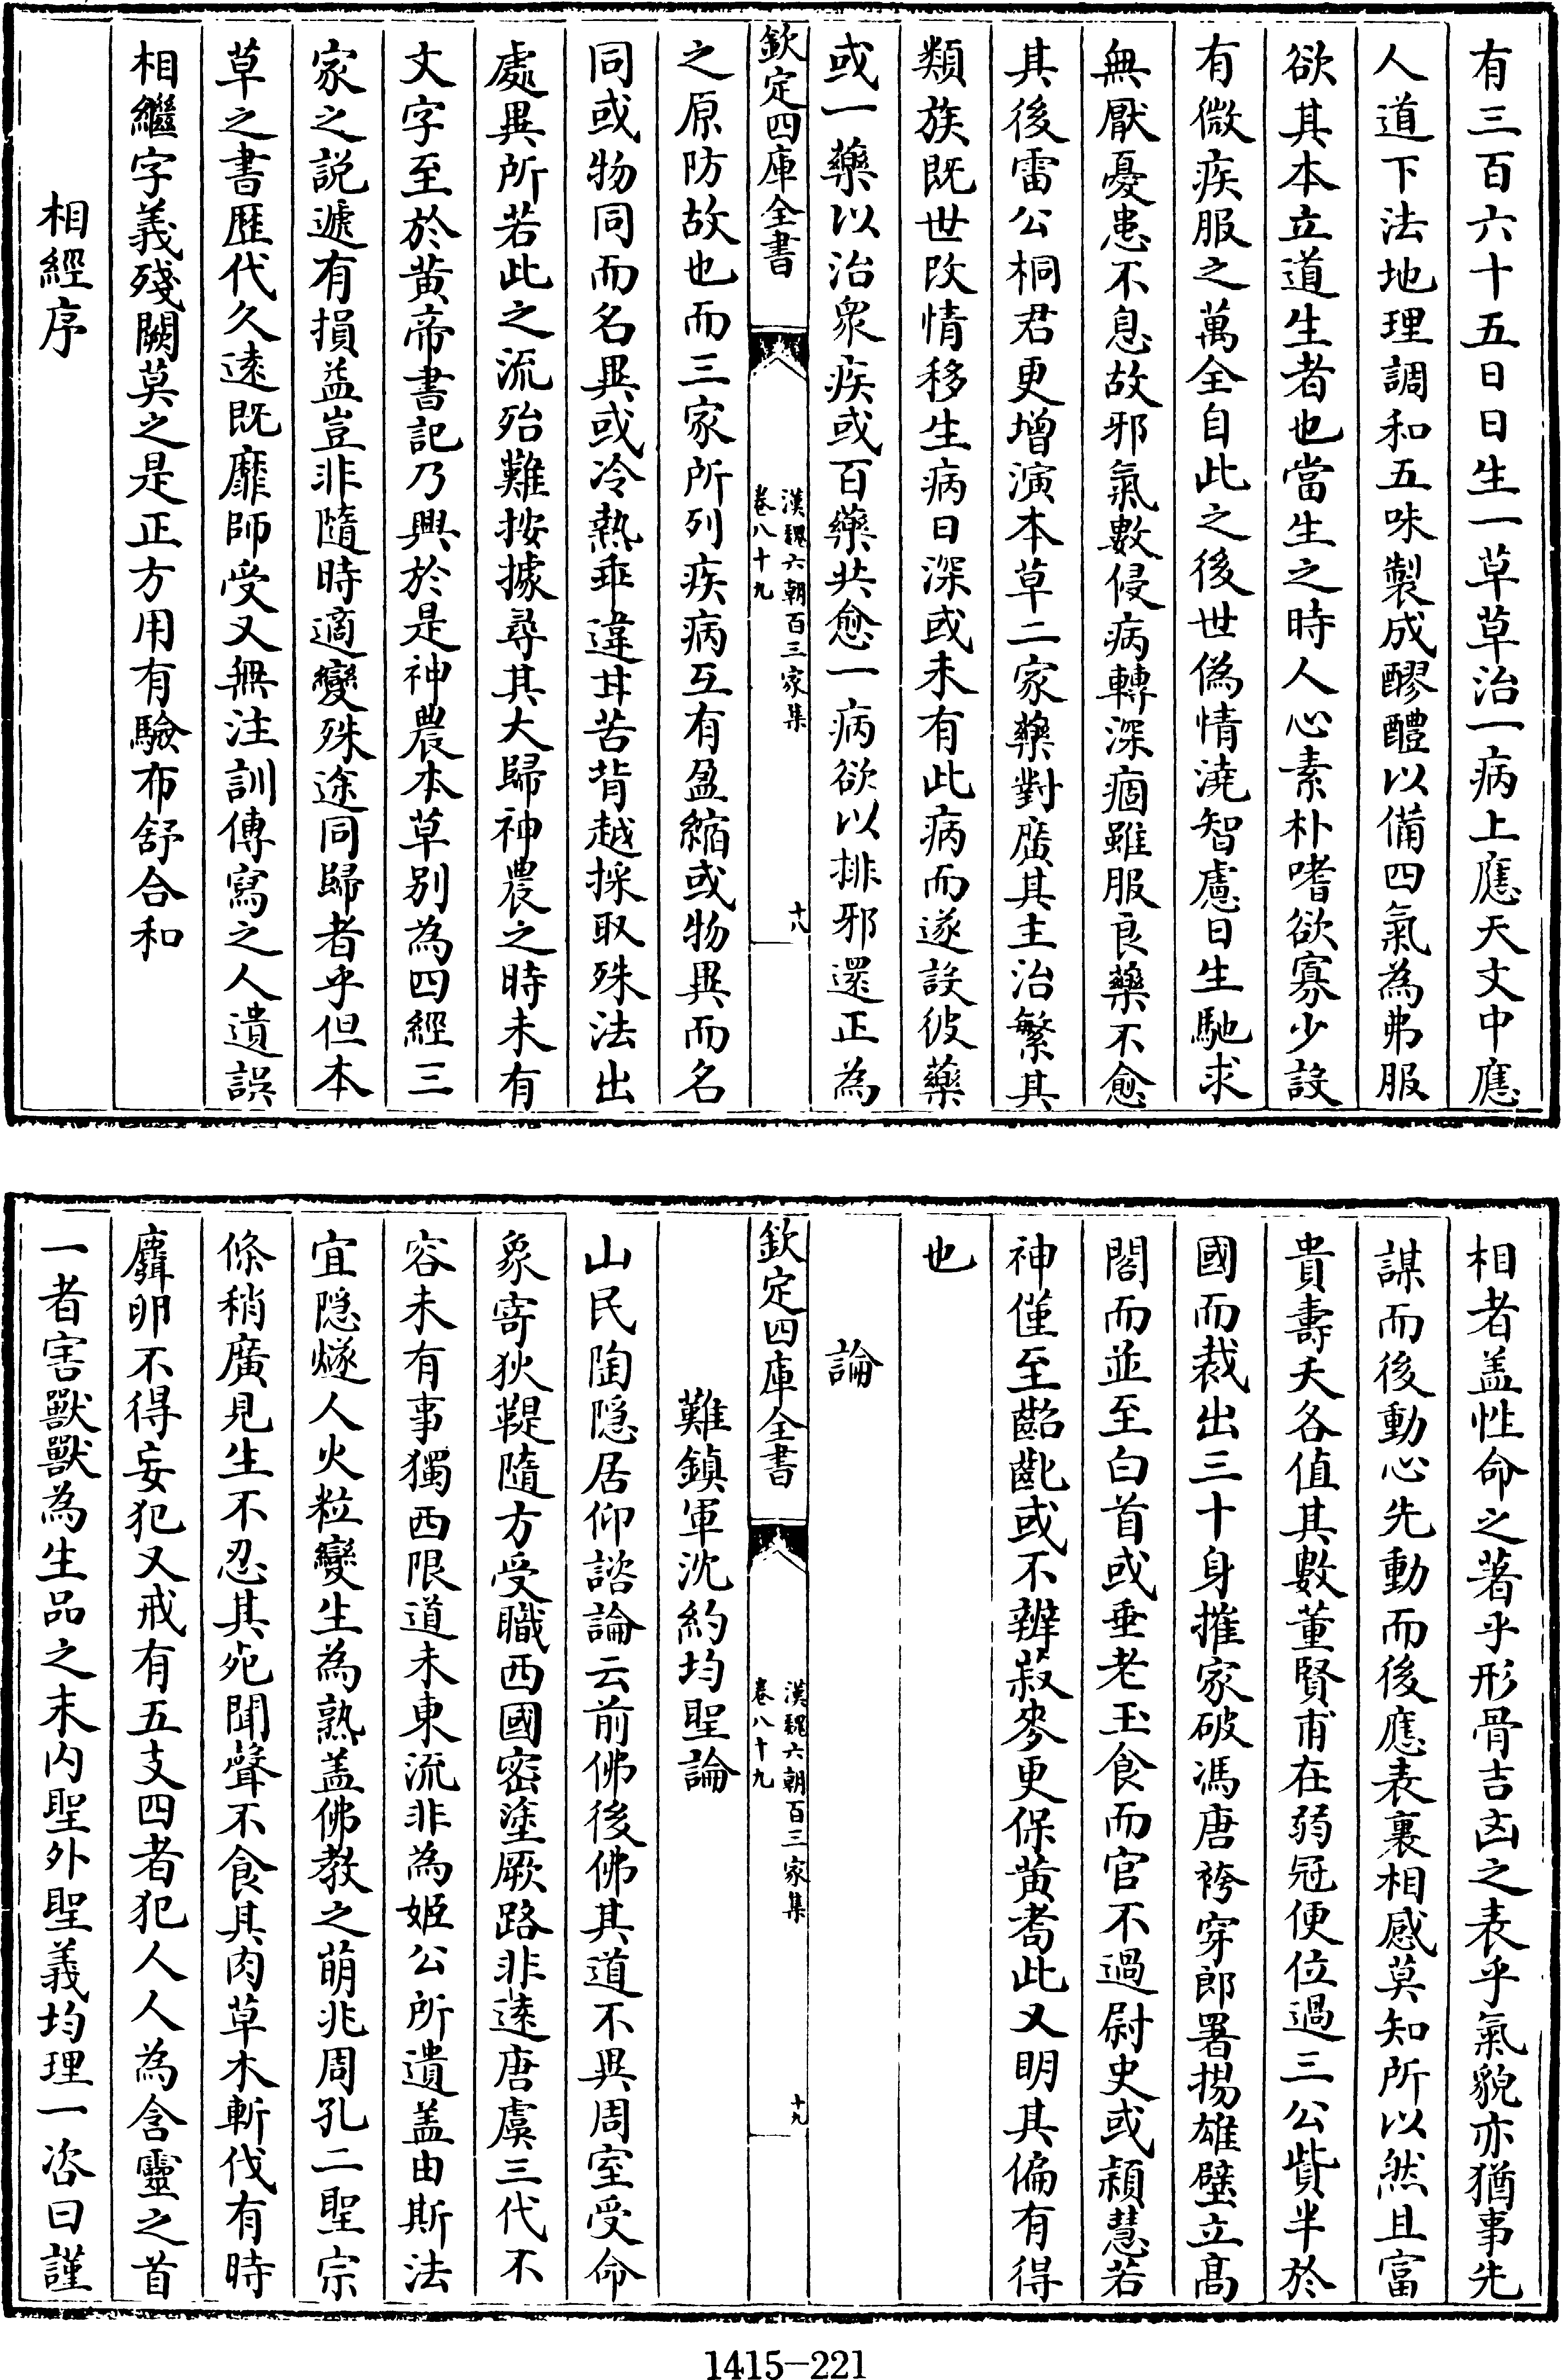 有三百六十五日日生一草草治一病上應天文中應
人道下法地理調和五味製成醪醴以備四氣為弗服
欲其本立道生者也當生之時人心素朴嗜欲寡少設
有微疾服之萬全自此之後世偽情澆智慮日生馳求
無厭憂患不息故邪氣數侵病轉深痼雖服良藥不愈
其後雷公桐君更增演本草二家藥對廣其主治繁其
類族既世改情移生病日深或未有此病而遂設彼藥
或一藥以治衆疾或百藥共愈一病欲以排邪還正為
欽定四庫全書
漢魏六朝百三家集
卷八十九
十八
之原防故也而三家所列疾病互有盈縮或物異而名
同或物同而名異或冷熱乖違甘苦背越採取殊法出
處異所若此之流殆難按據尋其大歸神農之時未有
文字至於黄帝書記乃興於是神農本草别為四經三
家之説遞有損益豈非隨時適變殊途同歸者乎但本
草之書歴代久逺既靡師受又無注訓傳寫之人遺誤
相繼字義殘闕莫之是正方用有驗布舒合和
相經序
相者盖性命之著乎形骨吉凶之表乎氣貌亦猶事先
謀而後動心先動而後應表裏相感莫知所以然且富
貴壽夭各值其數董賢甫在弱冠便位過三公貲半於
國而裁出三十身摧家破馮唐袴穿郎署揚雄壁立髙
閣而並至白首或垂老玉食而官不過尉史或頴慧若
神僅至齠齔或不辨菽麥更保黄耉此又明其偏有得
也
論
欽定四庫全書
漢魏六朝百三家集
卷八十九
十九
難鎮軍沈約均聖論
山民陶隠居仰諮論云前佛後佛其道不異周室受命
象寄狄鞮隨方受職西國密塗厥路非逺唐虞三代不
容未有事獨西限道未東流非為姬公所遺盖由斯法
宜隠燧人火粒變生為熟盖佛教之萌兆周孔二聖宗
條稍廣見生不忍其死聞聲不食其肉草木斬伐有時
麛卵不得妄犯又戒有五支四者犯人人為含靈之首
一者害獸獸為生品之末内聖外聖義均理一咨曰謹
1415-221